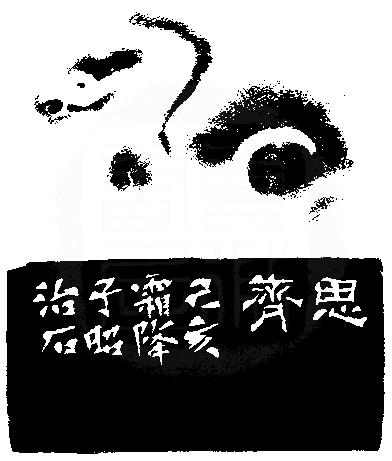 思齊
己亥
霜降
子昭
治石